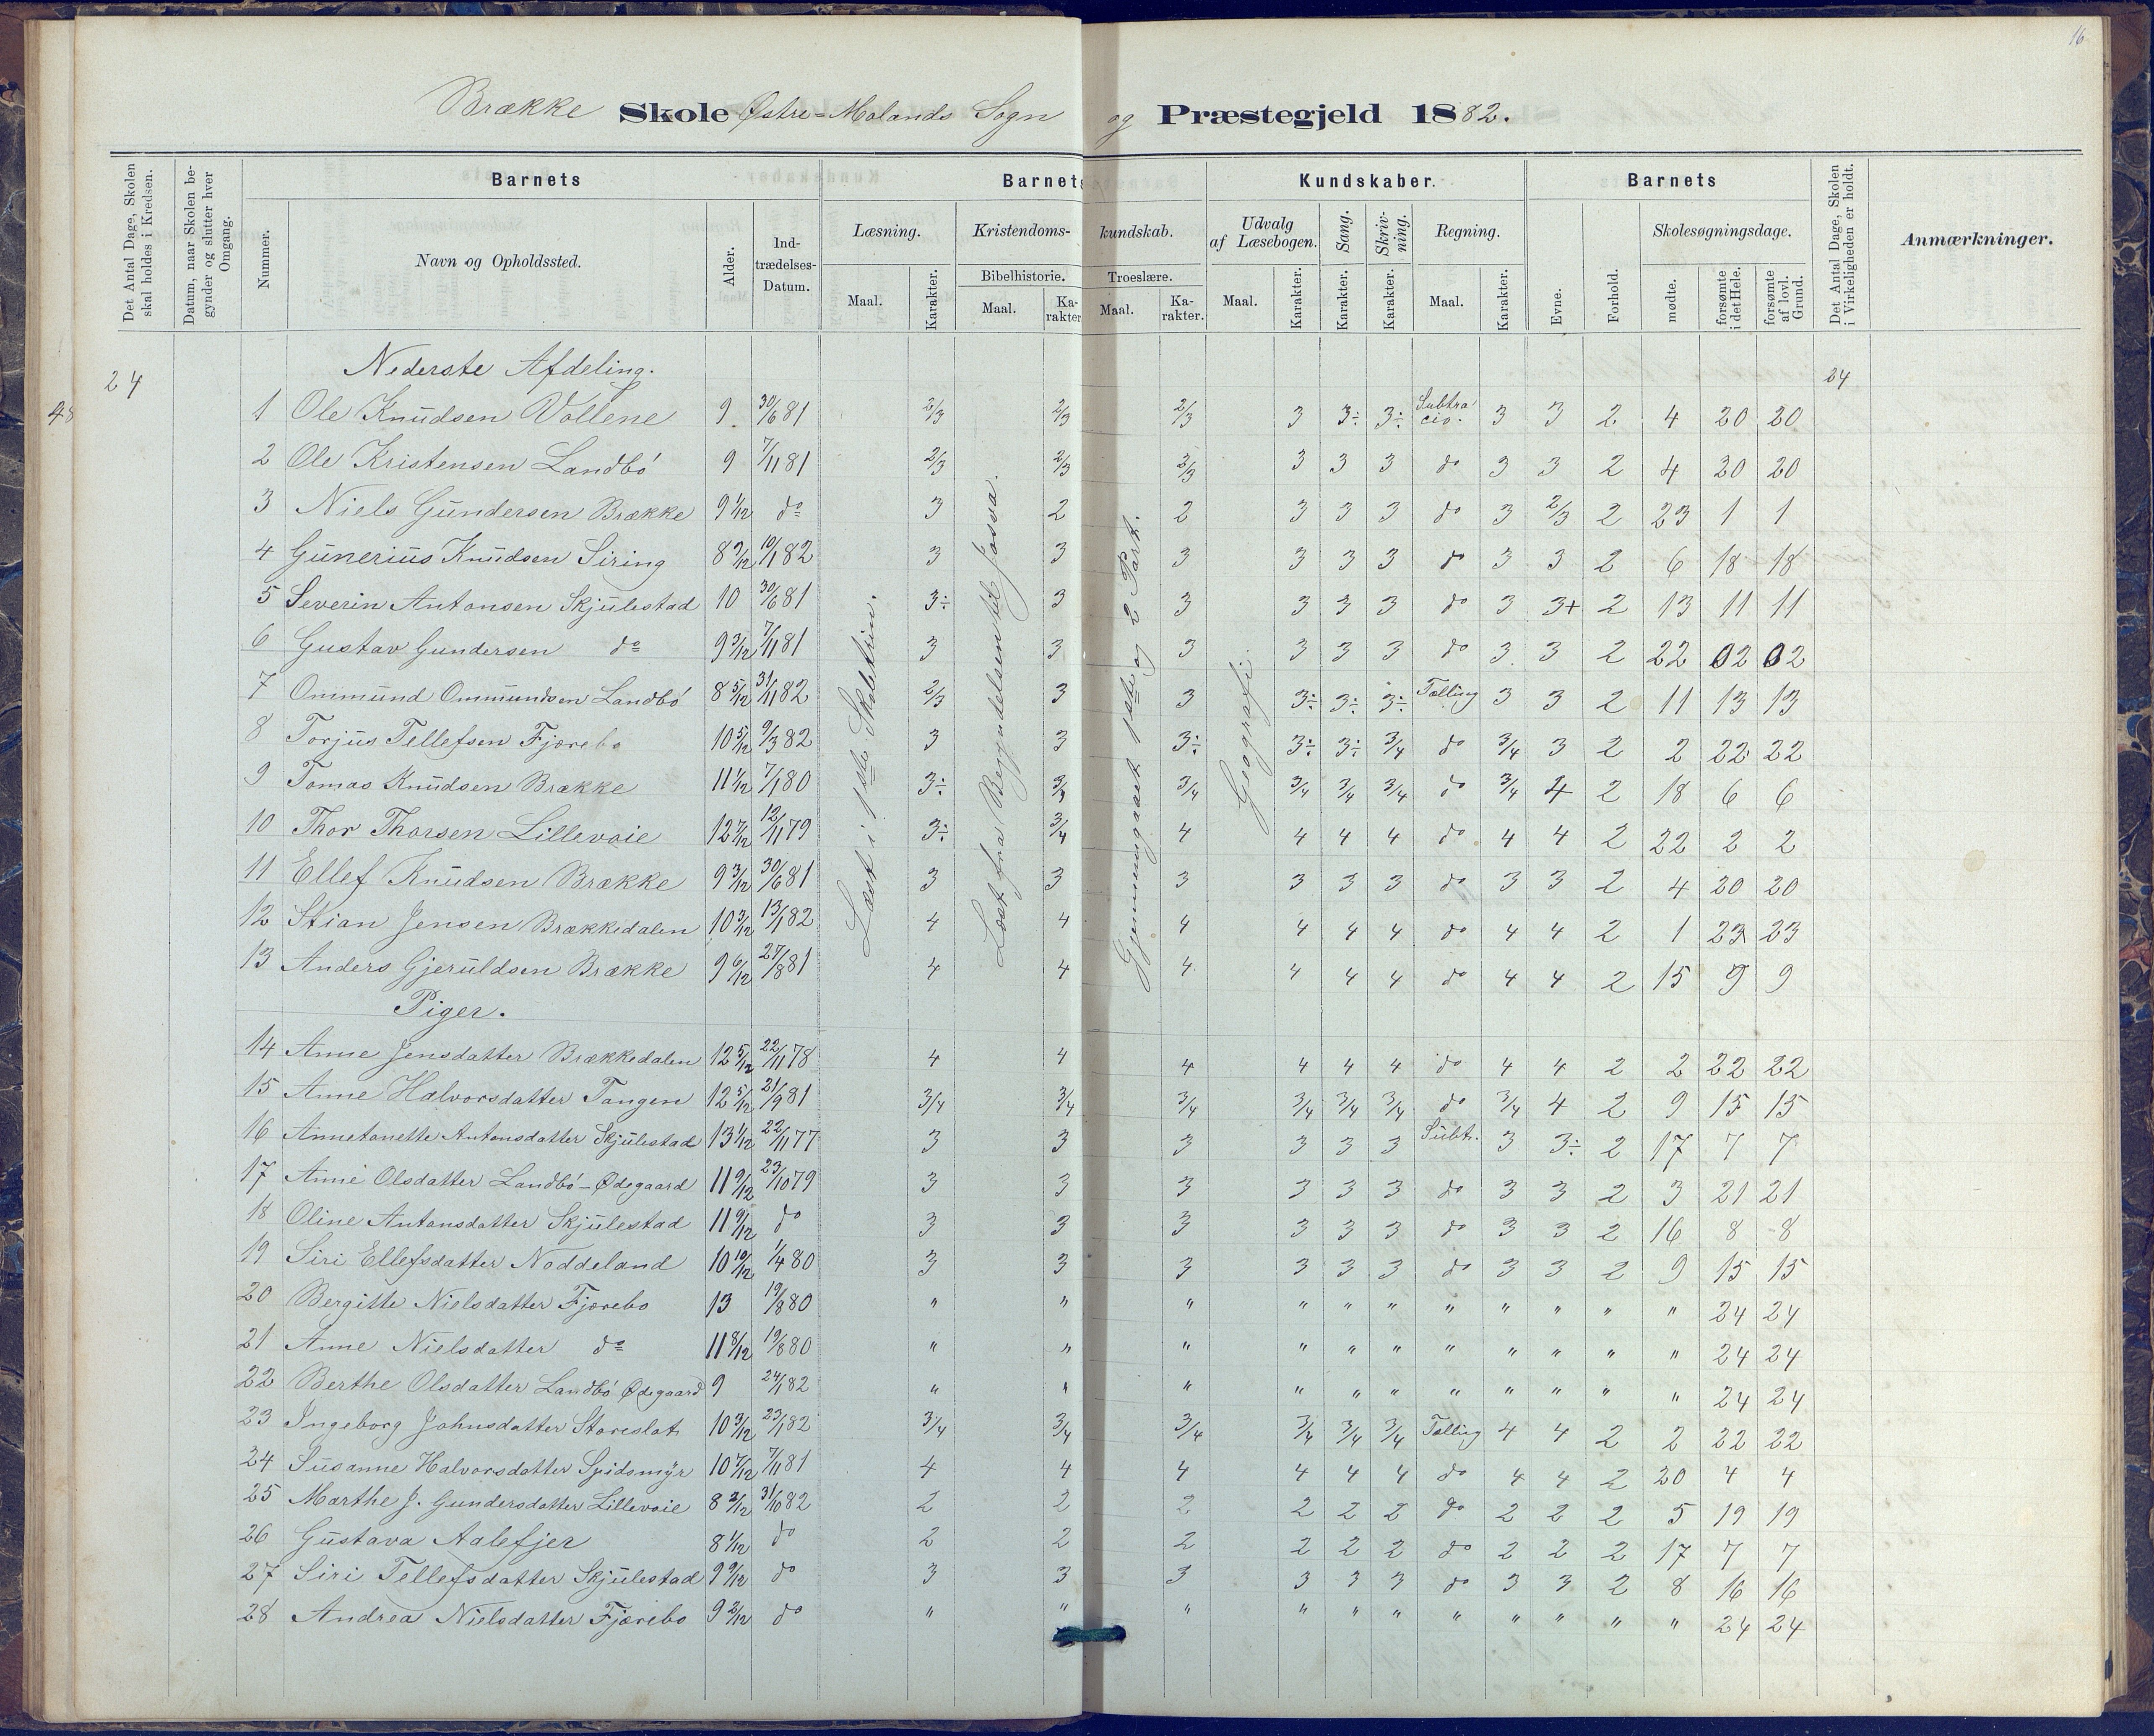 16
Brække Skole Østre-Molands Sogn og Præstegjeld 1882.
Det Antal Dage, Skolen skal holdes i Kredsen.
Datum, naar Skolen begynder og slutter hver Omgang.
Barnets
Nummer.
Navn og Opholdssted.
Alder.
Indtrædelses-Datum.
Barnets Kundskaber.
Læsning.
Maal.
Karakter.
Kristendoms-kundskab.
Bibelhistorie.
Maal.
Karakter
Troeslære.
Maal.
Karakter.
Udvalg af Læsebogen.
Maal.
Karakter.
Sang.
Karakter.
Skrivning.
Karakter.
Regning.
Maal.
Karakter.
Barnets
Evne.
Forhold.
Skolesøgningsdage.
mødte.
forsømte i det Hele.
forsømte af lovl. Grund.
Det Antal Dage, Skolen i Virkeligheden er holdt.
Anmærkninger.
48
24 Nederste Afdeling. 24
Læst i 1ste Skoletrin.
Læst fra Begyndelsen til Josva.
Gjennemgaaet 1ste og 2 Part.
Geografi.
1 Ole Knudsen Vollene 9 30/6 81 2/3 2/3 2/3 3 3÷ 3÷ Subtracio. 3 3 2 4 20 20
2 Ole Kristensen Landbö 9 7/11 81 2/3 2/3 2/3 3 3 3 do 3 3 2 4 20 20
3 Niels Gundersen Brække 9 1/12 do 3 2 2 3 3 3 do 3 2/3 2 23 1 1
4 Gunerius Knudsen Siring 8 9/12 10/1 82 3 3 3 3 3 3 do 3 3 2 6 18 18
5 Severin Antonsen Skjulestad 10 30/6 81 3÷ 3 3 3 3 3 do 3 3+ 2 13 11 11
6 Gustav Gundersen do 9 3/12 7/11 81 3 3 3 3 3 3 do 3 3 2 22 02 02
7 Ommund Ommundsen Landbö 8 5/12 31/1 82 2/3 3 3 3÷ 3÷ 3÷ Tælling 3 3 2 11 13 13
8 Torjus Tellefsen Fjærebo 10 5/12 9/3 82 3 3 3÷ 3÷ 3÷ 3/4 do 3/4 3 2 2 22 22
9 Tomas Knudsen Brække 11 1/12 7/1 80 3÷ 3/4 3/4 3/4 3/4 do 3/4 4 2 18 6 6
10 Thor Thorsen Lillevaie 12 7/12 12/11 79 3÷ 3/4 4 4 4 4 do 4 4 2 22 2 2
11 Ellef Knudsen Brække 9 3/12 30/6 81 3 3 3 3 3 3 do 3 3 2 4 20 20
12 Stian Jensen Brækkedalen 10 3/12 13/1 82 4 4 4 4 4 4 do 4 4 2 1 23 23
13 Anders Gjeruldsen Brække 9 6/12 27/8 81 4 4 4 4 4 4 do 4 4 2 15 9 9
Piger.
14 Anne Jensdatter Brækkedalen 12 5/12 22/11 78 4 4 4 4 4 4 do 4 4 2 2 22 22
15 Anne Halvorsdatter Tangen 12 5/12 21/9 81 3/4 3/4 3/4 3/4 3/4 3/4 do 3/4 4 2 9 15 15
16 Annetonette Antonsdatter Skjulestad 13 1/12 22/11 77 3 3 3 3 3 3 Subt. 3 3÷ 2 17 7 7
17 Anne Olsdatter Landbö-Ødegaard 11 9/12 23/10 79 3 3 3 3 3 3 do 3 3 2 3 21 21
18 Oline Antonsdatter Skjulestad 11 9/12 do 3 3 3 3 3 3 do 3 3 2 16 8 8
19 Siri Ellefsdatter Noddeland 10 10/12 1/4 80 3 3 3 3 3 3 do 3 3 2 9 15 15
20 Bergitte Nielsdatter Fjærebo 13 19/8 80 " " " " " " " " " " " 24 24
21 Anne Nielsdatter do 11 8/12 19/8 80 " " " " " " " " " " " 24 24
22 Berthe Olsdatter Landbö Ødegaard 9 24/1 82 " " " " " " " " " " " 24 24
23 Ingeborg Johnsdatter Storeslot 10 3/12 23/1 82 3/4 3/4 3/4 3/4 3/4 3/4 Tælling 4 4 2 2 22 22
24 Susanne Halvorsdatter Spidsmyr 10 7/12 7/11 81 4 4 4 4 4 4 do 4 4 2 20 4 4
25 Marthe J. Gundersdatter Lillevaie 8 2/12 31/10 82 2 2 2 2 2 2 do 2 2 2 5 19 19
26 Gustava Aalefjer 8 1/12 do 2 2 2 2 2 2 do 2 2 2 17 7 7
27 Siri Tellefsdatter Skjulestad 9 9/12 do 3 3 3 3 3 3 do 3 3 2 8 16 16
28 Andrea Nielsdatter Fjærebo 9 2/12 do " " " " " " " " " " " 24 24